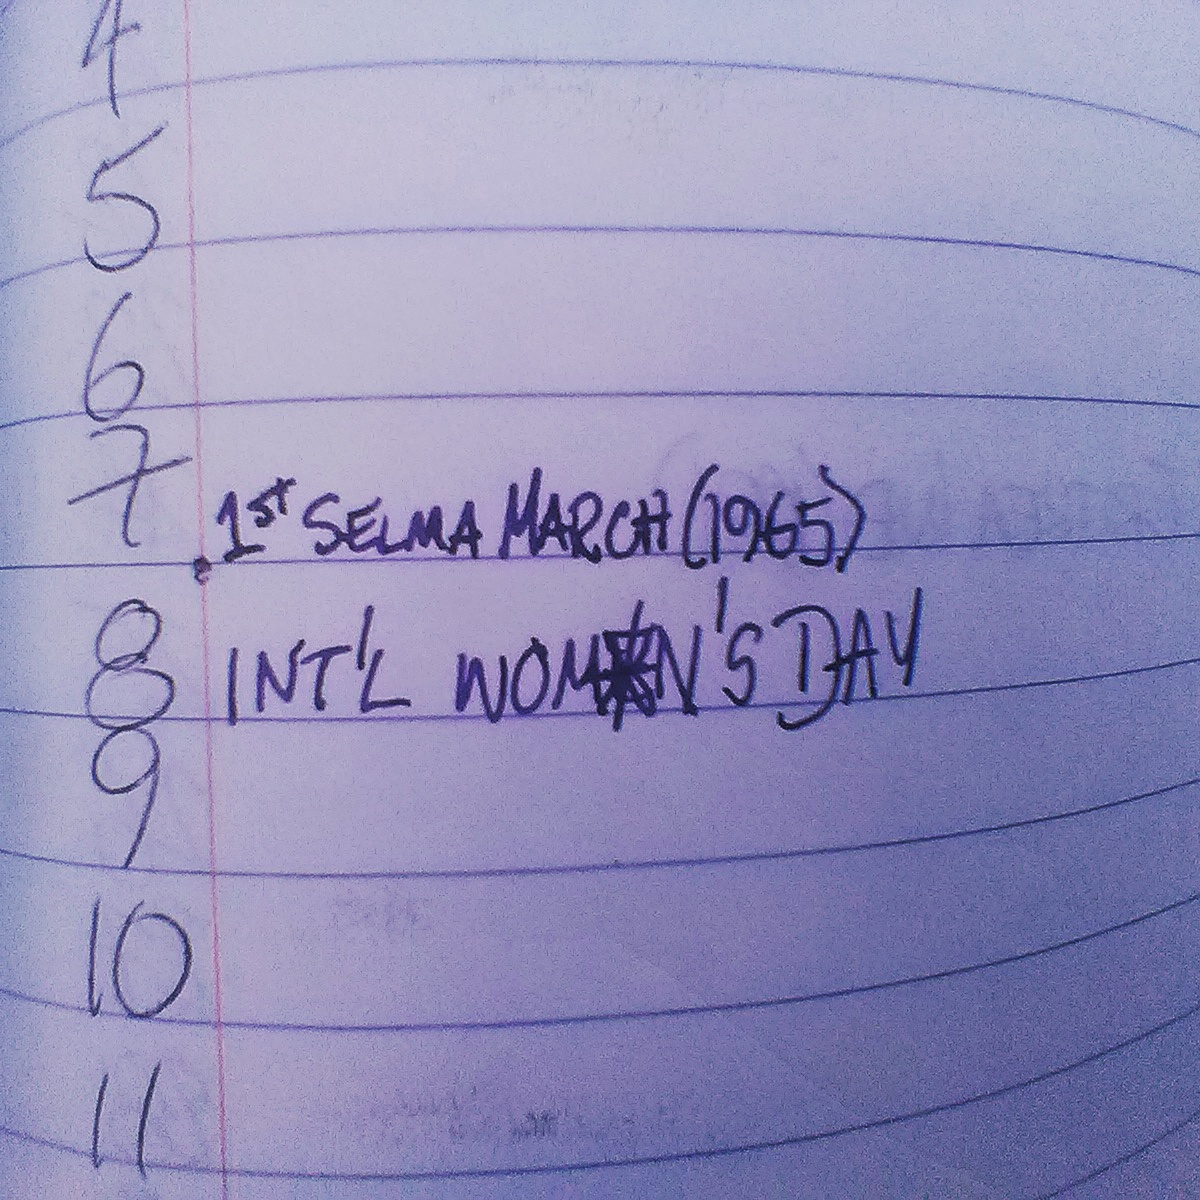 4
5
6
7 1ST SELMA MARCH (1965)
8 INT'L WOM*N'S DAY
9
10
11